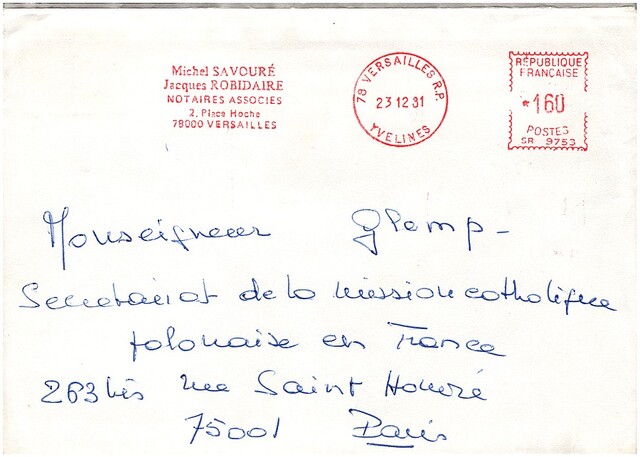 Michel SAVOURÉ
Jacques ROBIDAIRE
NOTAIRES ASSOCIES
2, Place Hoche
78000 VERSAILLES
78 VERSAILLES R.P.
23 12 81
YVELINES
RÉPUBLIQUE
FRANÇAISE
*160
POSTES
SR 9753
Monseigneur Glemp -
Secretariat de la mission catholique
polonaise en France
263 bis rue Saint Honoré
75001 Paris